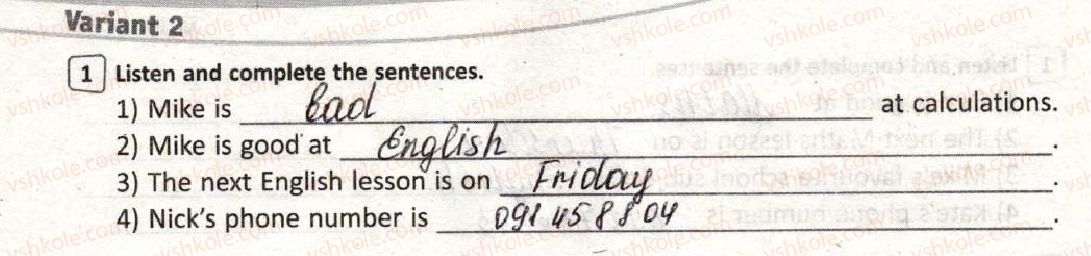 Variant 2
1 Listen and complete the sentences.
1) Mike is bad at calculations.
2) Mike is good at English.
3) The next English lesson is on Friday.
4) Nick's phone number is 091 458 8 04.
vshkole.com